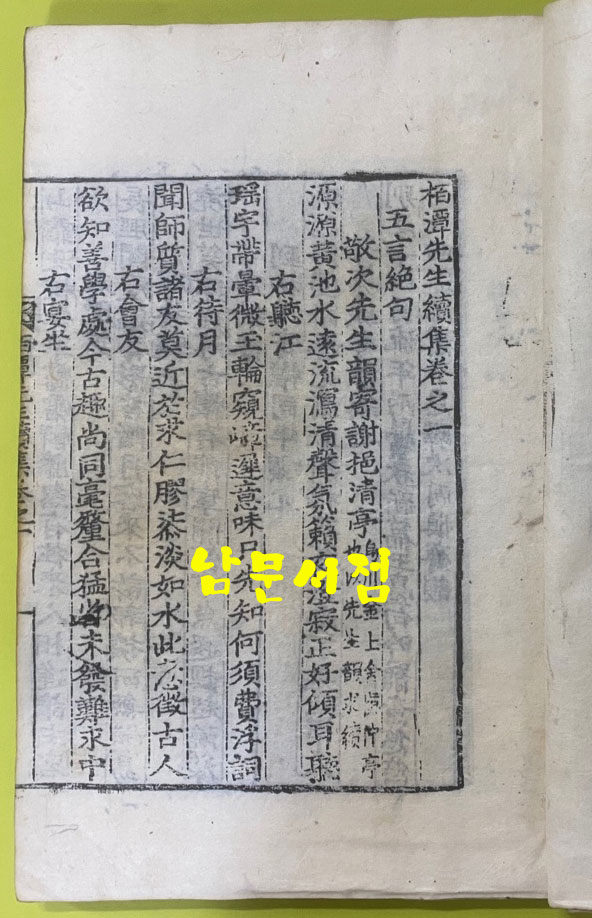 栢潭先生續集卷之一
五言絶句
敬次先生韻寄謝挹淸亭
金上舍 仲亭
也以先生韻求續
源源黃池水遠流瀉淸聲氛籟 寂正好傾耳聽
右聽江
瑶宇帶暈微玉輪窺 遲意味只先知何須費浮詞
右待月
聞師質諸友莫近於求仁膠漆淡如水此 徵古人
右會友
欲知善學處今古趣尚同毫釐合猛省未發難求中
右宴坐
남문서점